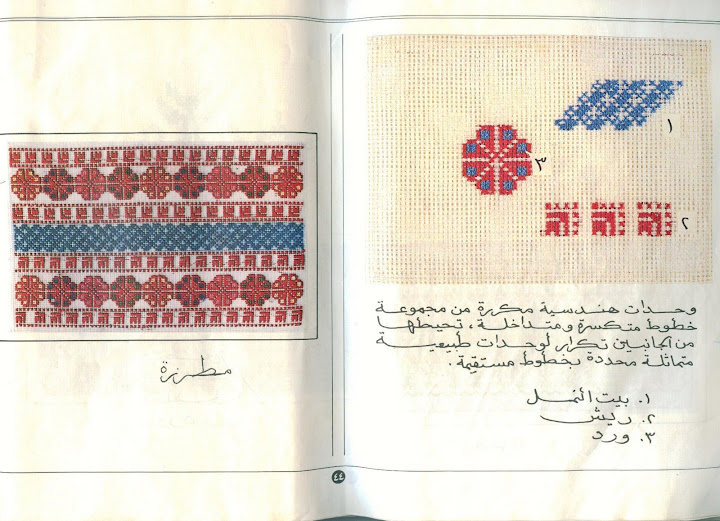 ١
٣
٢
وحدات هندسية مكررة من مجموعة
خطوط متكسرة ومتداخلة، تحيطها
من الجانبين تكرار لوحدات طبيعية
متماثلة محددة بخطوط مستقيمة.
١. بيت النمل
٢. ريش
٣. ورد
مطرزة
٤٤